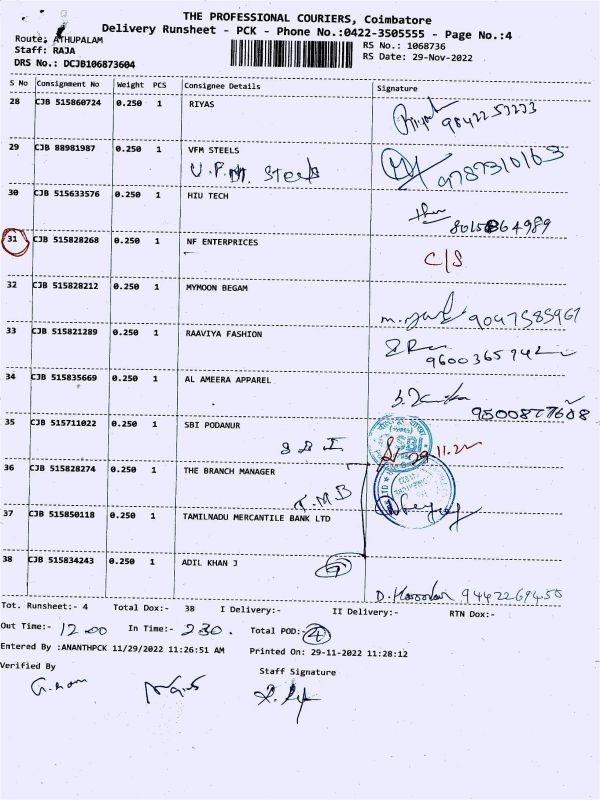 THE PROFESSIONAL COURIERS, Coimbatore
Delivery Runsheet - PCK - Phone No.:0422-3505555 - Page No.:4
Route: ATHUPALAM
RS No.: 1068736
Staff: RAJA
RS Date: 29-Nov-2022
DRS No.: DCJB106873604
S No Consignment No Weight PCS Consignee Details Signature
28 CJB 515860724 0.250 1 RIYAS
29 CJB 88981987 0.250 1 VFM STEELS
V.F.M. Steels 9787310163
30 CJB 515633576 0.250 1 HIU TECH
31 CJB 515828268 0.250 1 NF ENTERPRICES
C/S
32 CJB 515828212 0.250 1 MYMOON BEGAM
33 CJB 515821289 0.250 1 RAAVIYA FASHION
34 CJB 515835669 0.250 1 AL AMEERA APPAREL
35 CJB 515711022 0.250 1 SBI PODANUR
SBI 29.11.22
36 CJB 515828274 0.250 1 THE BRANCH MANAGER
T.M.B
37 CJB 515850118 0.250 1 TAMILNADU MERCANTILE BANK LTD
38 CJB 515834243 0.250 1 ADIL KHAN J
9442269450
Tot. Runsheet:- 4 Total Dox:- 38 I Delivery:- II Delivery:- RTN Dox:-
Out Time:- 12.00 In Time:- 2.30. Total POD:- 4
Entered By :ANANTHPCK 11/29/2022 11:26:51 AM Printed On: 29-11-2022 11:28:12
Verified By Staff Signature